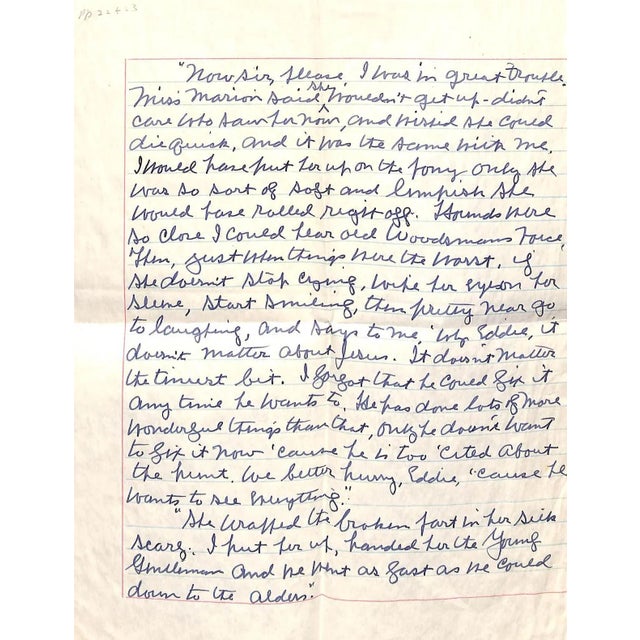 pp 2-4-3
"Now sir, please, I was in great trouble.
Miss Marion said she wouldn't get up - didn't
care who saw her now, and wished she could
die quick, and it was the same with me.
I would have put her up on the pony only she
was so sort of soft and limpish she
would have rolled right off. Hounds were
so close I could hear old Woodsman's voice.
Then, just when things were the worst, if
she doesn't stop crying, wipe her eyes on her
sleeve, start smiling, then pretty near go
to laughing, and says to me, 'Why Eddie, it
doesn't matter about Jesus. It doesn't matter
the tiniest bit. I forgot that he could fix it
any time he wants to. He has done lots of more
wonderful things than that, only he doesn't want
to fix it now 'cause he is too 'cited about
the hunt. We better hurry, Eddie, 'cause he
wants to see everything.'"
"She wrapped the broken part in her silk
scarf. I put her up, handed her the Young
Gentleman and we went as fast as we could
down to the alders."